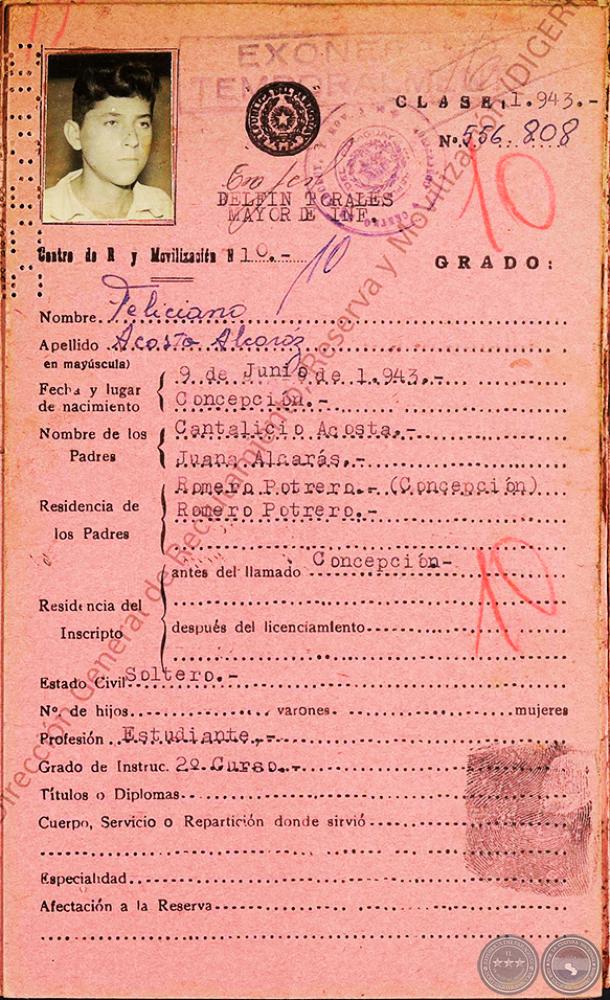 17
EXONERADO
TEMPORALMENTE
CLASE, 1.943.-
Nº. 556.808
10
DELFIN TORALES
MAYOR DE INF.
Centro de R y Movilización N 10.-
10
GRADO:
Nombre. Feliciano
Apellido Acosta Alcaráz
en mayúscula)
Fecha y lugar 9 de Junio de 1.943.-
de nacimiento Concepción.-
Nombre de los Cantalicio Acosta.-
Padres Juana Alcarás.-
Romero Potrero.- (Concepción)
Residencia de Romero Potrero.-
los Padres
10
antes del llamado Concepción-
Residencia del
Inscripto después del licenciamiento
Estado Civil Soltero.-
Nº. de hijos varones. mujeres
Profesión Estudiante,-
Grado de Instruc. 2º Curso.-
Títulos o Diplomas
Cuerpo, Servicio o Repartición donde sirvió
Especialidad
Afectación a la Reserva
Dirección General de Reclutamiento, Reserva y Movilización (DIGERRMOV)